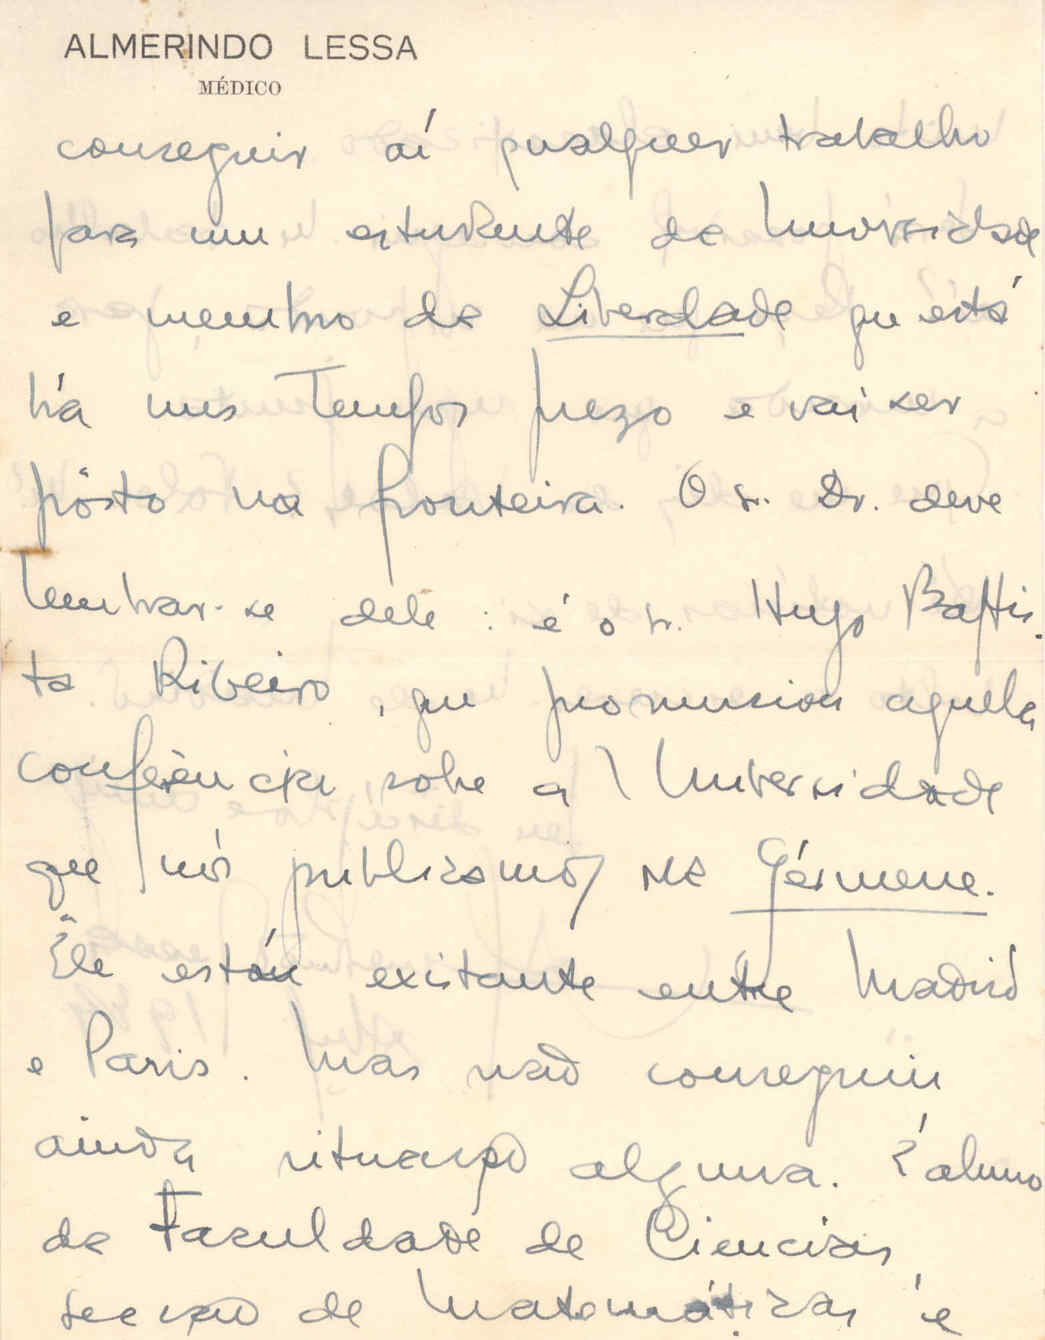 ALMERINDO LESSA
MÉDICO
conseguir aí qualquer trabalho
para um estudante da Universidade
e membro da Liberdade que está
há uns tempos prezo e vai ser
pôsto na fronteira. O sr. Dr. deve
lembrar-se dele : é o sr. Hugo Baptis-
ta Ribeiro, que pronunciou aquella
conferência sobre a Universidade
que nós publicamos na Gérmene.
Êle está exitante entre Madrid
e Paris. Mas não conseguiu
ainda situação alguma. É aluno
da Faculdade de Ciencias,
secção de Matemáticas e